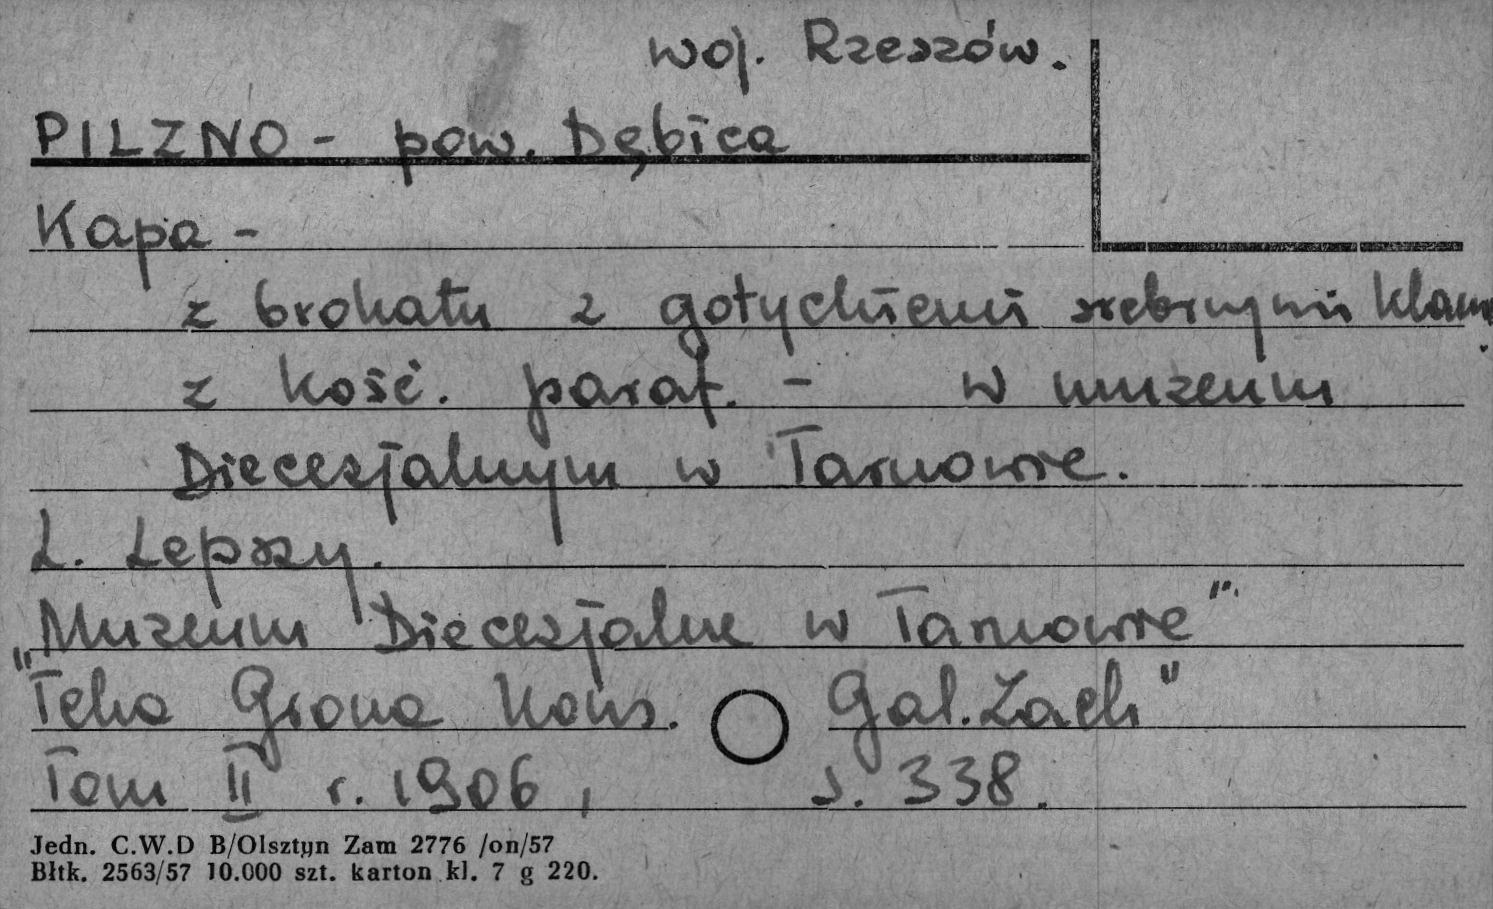 woj. Rzeszów.
PILZNO - pow. Dębica
Kapa -
z brokatu z gotyckiemi srebrnymi klam
z kość. paraf. - w muzeum
Diecezjalnym w Tarnowie.
L. Lepszy.
„Muzeum Diecezjalne w Tarnowie"
Teka Grona Kons. Gal. Zach"
Tom II r. 1906, s. 338.
Jedn. C.W.D B/Olsztyn Zam 2776 /on/57
Błtk. 2563/57 10.000 szt. karton kl. 7 g 220.